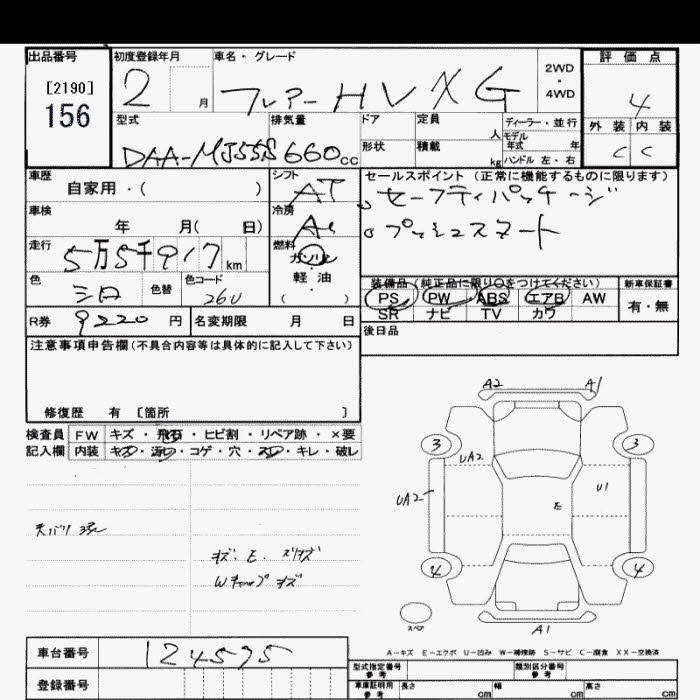 出品番号 初度登録年月 車名・グレード 評価点
[2190]
156
2 月 フレアー HV XG 2WD・4WD 4
型式 排気量 ドア 定員 人 ディーラー・並行
モデル年式 年 外装 内装
DAA-MJ55S 660cc 形状 積載 kg ハンドル 左・右 C C
車歴 シフト セールスポイント(正常に機能するものに限ります)
自家用・( ) AT 。セーフティパッケージ
車検 冷房 。プッシュスタート
年 月( 日) AC
走行 燃料
5万5千917km ガソリン
色 色替 色コード 軽・油
シロ 26U ( ・ )
装備品(純正品に限り○をつけてください) 新車保証書
PS PW ABS エアB AW 有・無
SR ナビ TV カワ
R券 9220円 名変期限 月 日 後日品
注意事項申告欄(不具合内容等は具体的に記入して下さい)
修復歴 有 [箇所 ]
検査員 FW キズ・飛石・ヒビ割・リペア跡・×要
記入欄 内装 キズ・汚れ・コゲ・穴・スレ・キレ・破レ
A2 A1
3 3
UA2
UA2 E U1
キズ. E. スリキズ
Wキャップ キズ
4 4
スペア A1
A-キズ E-エクボ U-凹み W-補修跡 S-サビ C-腐食 XX-交換済
車台番号 124595
登録番号
型式指定番号 参考 類別区分番号 参考
車庫証明用 参考 長さ cm 幅 cm 高さ cm